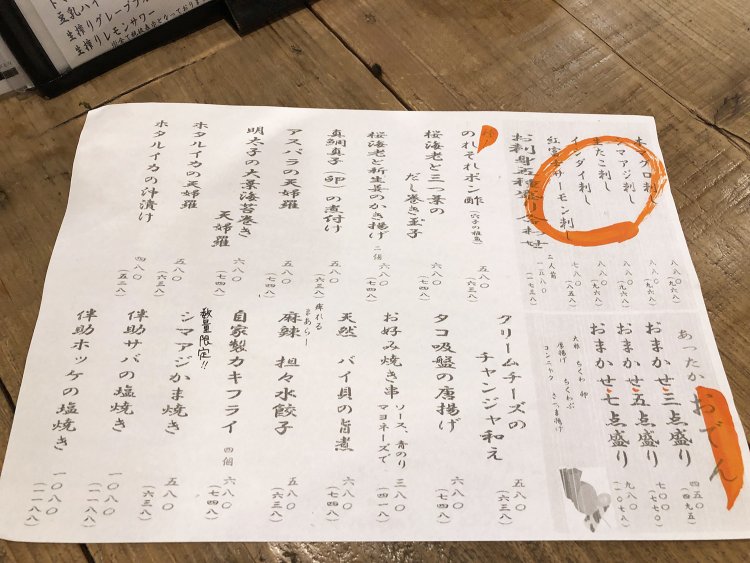 豆乳ハイ
生搾りグレープフル
生搾りレモンサワー
本マグロ刺し 八八〇(九六八)
シマアジ刺し 八八〇(九六八)
生たこ刺し 八八〇(九六八)
イシダイ刺し 八八〇(九六八)
紅富士サーモン刺し 七八〇(八五八)
お刺身五種盛り合わせ 二人前 一五八〇(一七三八)
のれそれポン酢(穴子の稚魚) 五八〇(六三八)
桜海老と三つ葉の
だし巻き玉子 六八〇(七四八)
桜海老と新生姜のかき揚げ 二個 六八〇(七四八)
真鯛真子(卵)の煮付け 五八〇(六三八)
アスパラの天婦羅 五八〇(六三八)
明太子の大葉海苔巻き
天婦羅 六八〇(七四八)
ホタルイカの天婦羅 五八〇(六三八)
ホタルイカの沖漬け 四八〇(五二八)
あったかおでん
おまかせ・三点盛り 四五〇(四九五)
おまかせ・五点盛り 七〇〇(七七〇)
おまかせ・七点盛り 九八〇(一〇七八)
大根 ちくわ 卵
唐揚げ ちくわぶ
コンニャク さつま揚げ
クリームチーズの
チャンジャ和え 五八〇(六三八)
タコ吸盤の唐揚げ 六八〇(七四八)
お好み焼き串 ソース、青のり
マヨネーズで 三八〇(四一八)
天然 バイ貝の旨煮 六八〇(七四八)
痺れる
うまあらー
麻辣 担々水餃子 五八〇(六三八)
自家製カキフライ 四個 六八〇(七四八)
数量限定!!
シマアジかま焼き 五八〇(六三八)
伴助サバの塩焼き 一〇八〇(一一八八)
伴助ホッケの塩焼き 一〇八〇(一一八八)